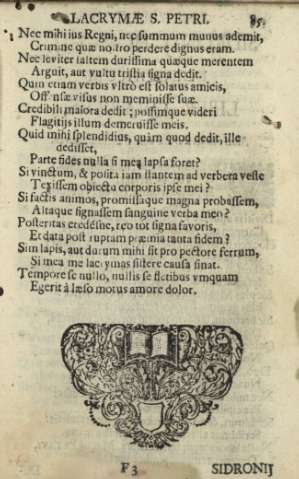 LACRYMÆ S. PETRI. 85
Nec mihi ius Regni, nec summum munus ademit,
Crimine quæ nostro perdere dignus eram.
Nec leviter saltem durissima quæque merentem
Arguit, aut vultu tristia signa dedit.
Quin etiam verbis vltrò est solatus amicis,
Offensæ visus non meminisse suæ.
Credibili maiora dedit; possimque videri
Flagitiis illum demeruisse meis.
Quid mihi splendidius, quàm quod dedit, ille
dedisset,
Parte fides nulla si mea lapsa foret?
Si vinctum, & posita iam stantem ad verbera veste
Texissem obiectu corporis ipse mei?
Si factis animos, promissaque magna probassem,
Altaque signassem sanguine verba meo?
Posteritas credésne, reo tot signa favoris,
Et data post ruptam præmia tanta fidem?
Sim lapis, aut durum mihi sit pro pectore ferrum,
Si mea me lacrymas sistere causa sinat.
Tempore se nullo, nullis se fletibus vmquam
Egerit à læso motus amore dolor.
F 3 SIDRONIJ